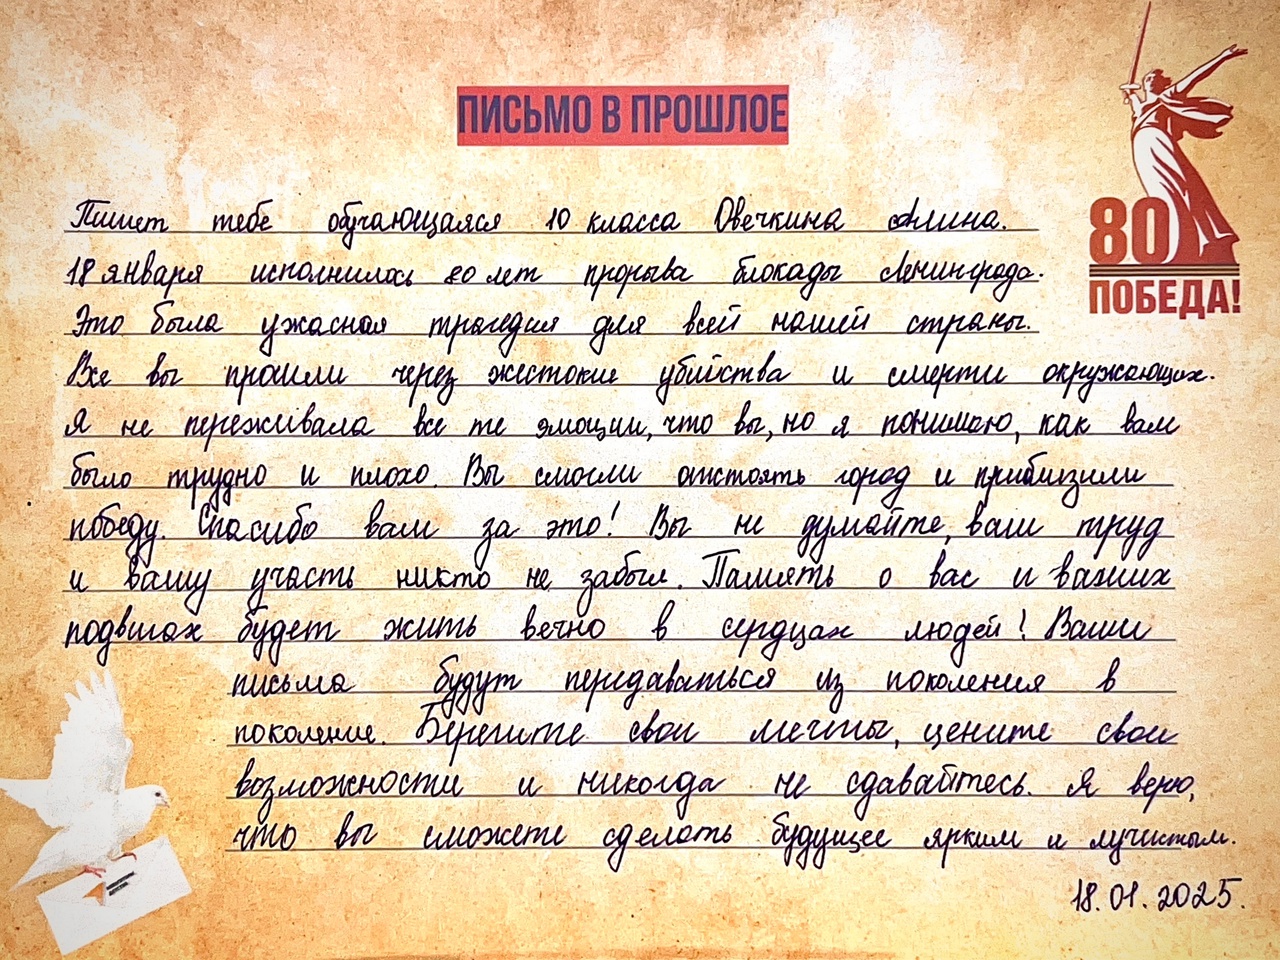 ПИСЬМО В ПРОШЛОЕ
80
ПОБЕДА!
Пишет тебе обучающаяся 10 класса Овечкина Алина.
18 января исполнилось 80 лет прорыва блокады Ленинграда.
Это была ужасная трагедия для всей нашей страны.
Все вы прошли через жестокие убийства и смерти окружающих.
Я не переживала все те эмоции, что вы, но я понимаю, как вам
было трудно и плохо. Вы смогли отстоять город и приблизили
победу. Спасибо вам за это! Вы не думайте, ваш труд
и вашу участь никто не забыл. Память о вас и ваших
подвигах будет жить вечно в сердцах людей! Ваши
письма будут передаваться из поколения в
поколение. Берегите свои мечты, цените свои
возможности и никогда не сдавайтесь. Я верю,
что вы сможете сделать будущее ярким и лучистым.
18.01.2025.